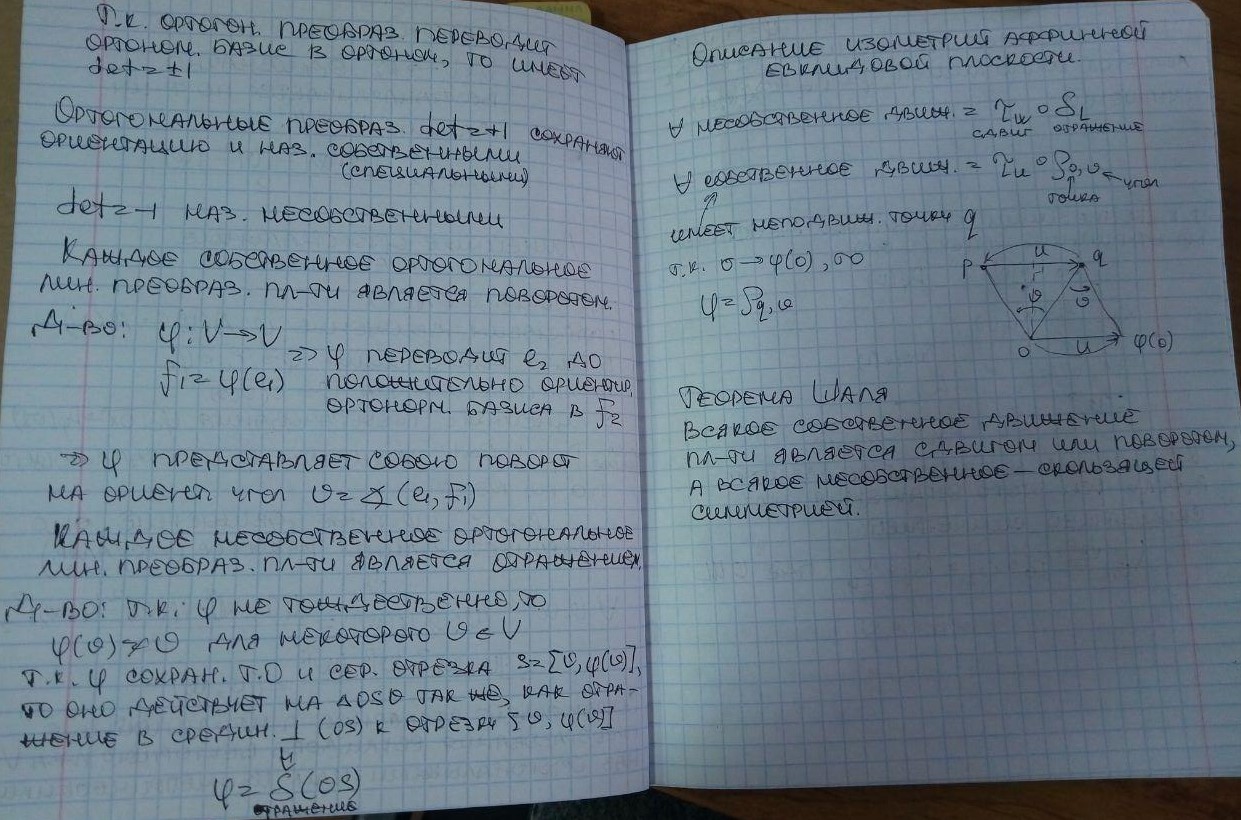 Т.К. ОРТОГОН. ПРЕОБРАЗ. ПЕРЕВОДИТ
ОРТОНОМ. БАЗИС В ОРТОНОМ, ТО ИМЕЕТ
det = ±1
ОРТОГОНАЛЬНЫЕ ПРЕОБРАЗ. det = +1 СОХРАНЯЮТ
ОРИЕНТАЦИЮ И НАЗ. СОБСТВЕННЫМИ
(СПЕЦИАЛЬНЫМИ)
det = -1 НАЗ. НЕСОБСТВЕННЫМИ
КАЖДОЕ СОБСТВЕННОЕ ОРТОГОНАЛЬНОЕ
ЛИН. ПРЕОБРАЗ. ПЛ-ТИ ЯВЛЯЕТСЯ ПОВОРОТОМ.
Д-ВО: φ: V → V
f₁ = φ(e₁) => φ ПЕРЕВОДИТ e₂ ДО
ПОЛОЖИТЕЛЬНО ОРИЕНТИР.
ОРТОНОРМ. БАЗИСА В f₂
=> φ ПРЕДСТАВЛЯЕТ СОБОЮ ПОВОРОТ
НА ОРИЕНТ. УГОЛ υ = ∡ (e₁, f₁)
КАЖДОЕ НЕСОБСТВЕННОЕ ОРТОГОНАЛЬНОЕ
ЛИН. ПРЕОБРАЗ. ПЛ-ТИ ЯВЛЯЕТСЯ ОТРАЖЕНИЕМ.
Д-ВО: Т.К. φ НЕ ТОЖДЕСТВЕННО, ТО
φ(υ) ≠ υ ДЛЯ НЕКОТОРОГО υ ∈ V
Т.К. φ СОХРАН. Т.О И СЕР. ОТРЕЗКА S = [υ, φ(υ)],
ТО ОНО ДЕЙСТВУЕТ НА ΔOSυ ТАК ЖЕ, КАК ОТРА-
ЖЕНИЕ В СРЕДИН. ⊥ (OS) К ОТРЕЗКУ [υ, φ(υ)]
⇓
φ = S(OS)
ОТРАЖЕНИЕ
ОПИСАНИЕ ИЗОМЕТРИЙ АФФИННОЙ
ЕВКЛИДОВОЙ ПЛОСКОСТИ.
∀ НЕСОБСТВЕННОЕ ДВИЖ. = τᵤ ∘ S_L
СДВИГ ОТРАЖЕНИЕ
∀ СОБСТВЕННОЕ ДВИЖ. = τᵤ ∘ ρ₀,υ ← УГОЛ
ТОЧКА
ИМЕЕТ НЕПОДВИЖ. ТОЧКУ q
Т.К. O → φ(O), ТО
φ = ρ_q,υ
p u q
υ υ
O u φ(O)
ТЕОРЕМА ШАЛЯ
ВСЯКОЕ СОБСТВЕННОЕ ДВИЖЕНИЕ
ПЛ-ТИ ЯВЛЯЕТСЯ СДВИГОМ ИЛИ ПОВОРОТОМ,
А ВСЯКОЕ НЕСОБСТВЕННОЕ — СКОЛЬЗЯЩЕЙ
СИММЕТРИЕЙ.